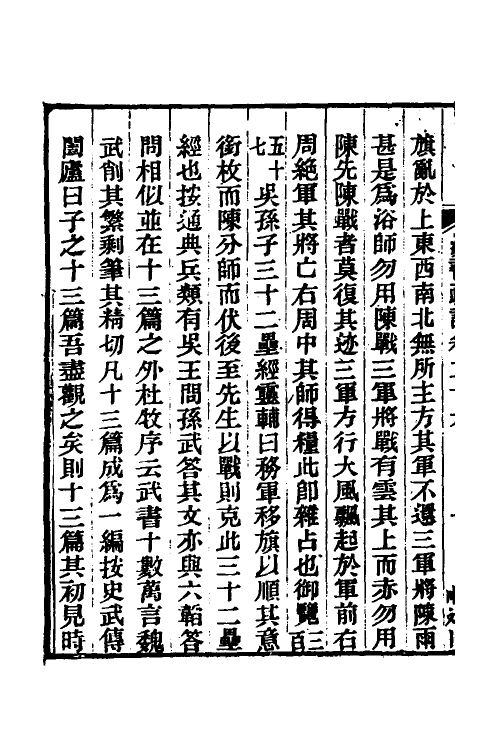 旗亂於上東西南北無所主方其軍不還三軍將陳雨
甚是爲浴師勿用陳戰三軍將戰有雲其上而赤勿用
陳先陳戰者莫復其迹三軍方行大風飄起於軍前右
周絕軍其將亡右周中其師得糧此卽雜占也御覽三百
五十七吳孫子三十二壘經靈輔曰務軍移旗以順其意
銜枚而陳分師而伏後至先生以戰則克此三十二壘
經也按通典兵類有吳王問孫武答其文亦與六韜答
問相似並在十三篇之外杜牧序云武書十數萬言魏
武削其繁剩筆其精切凡十三篇成爲一編按史武傳
闔廬曰子之十三篇吾盡觀之矣則十三篇其初見時